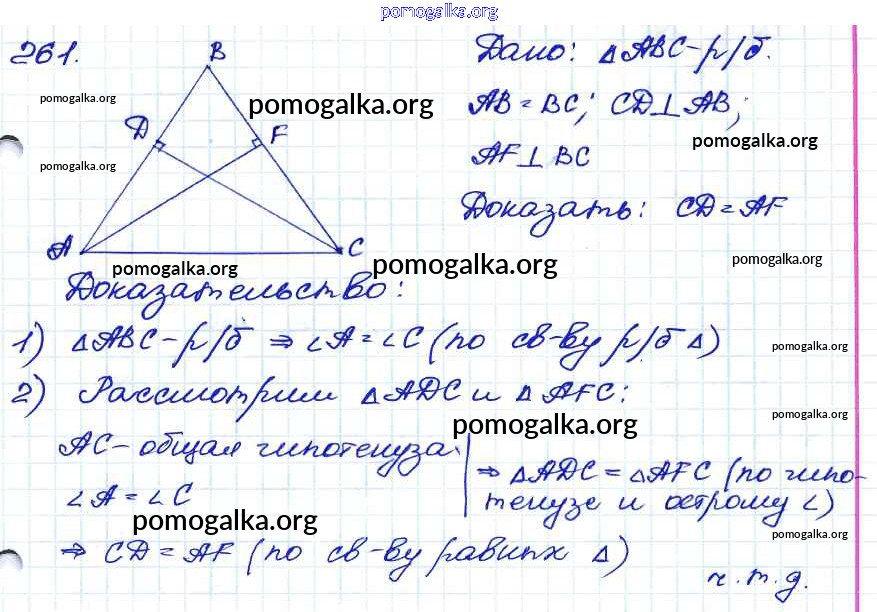 pomogalka.org
261.
B
Дано: △ABC-р/б.
pomogalka.org
pomogalka.org
AB = BC; CD⊥AB;
D
F
pomogalka.org
AF⊥BC
pomogalka.org
Доказать: CD=AF
A
C
pomogalka.org
pomogalka.org
pomogalka.org
Доказательство:
1) △ABC-р/б ⇒ ∠A=∠C (по св-ву р/б △)
pomogalka.org
2) Рассмотрим △ADC и △AFC:
pomogalka.org
pomogalka.org
AC-общая гипотенуза
⇒ △ADC=△AFC (по гипо-
∠A=∠C
тенузе и острому ∠)
pomogalka.org
pomogalka.org
⇒ CD=AF (по св-ву равных △)
ч.т.д.